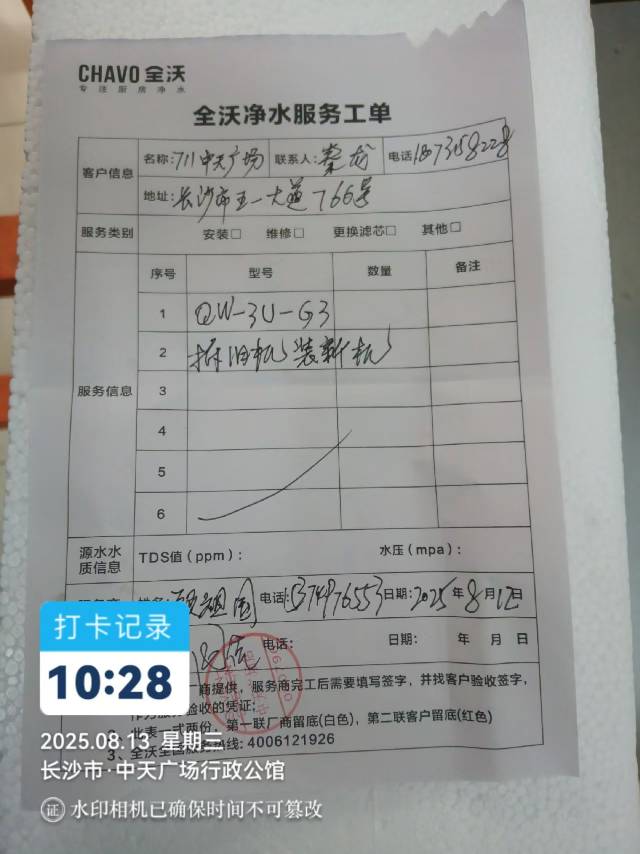 CHAVO 全沃
专注厨房净水
全沃净水服务工单
客户信息
名称: 711中天广场 联系人: 秦龙 电话
地址: 长沙市五一大道766号
服务类别 安装□ 维修□ 更换滤芯□ 其他□
服务信息
序号 型号 数量 备注
1 QW-3U-G3
2 拆旧机装新机
3
4
5
6
源水水质信息 TDS值(ppm): 水压(mpa):
电话: 日期: 2025年8月12日
电话: 日期: 年 月 日
商提供, 服务商完工后需要填写签字, 并找客户验收签字,
验收的凭证;
2、此表一式两份, 第一联厂商留底(白色), 第二联客户留底(红色)
3、全沃全国服务热线: 4006121926
打卡记录
10:28
2025.08.13 星期三
长沙市·中天广场行政公馆
证 水印相机已确保时间不可篡改